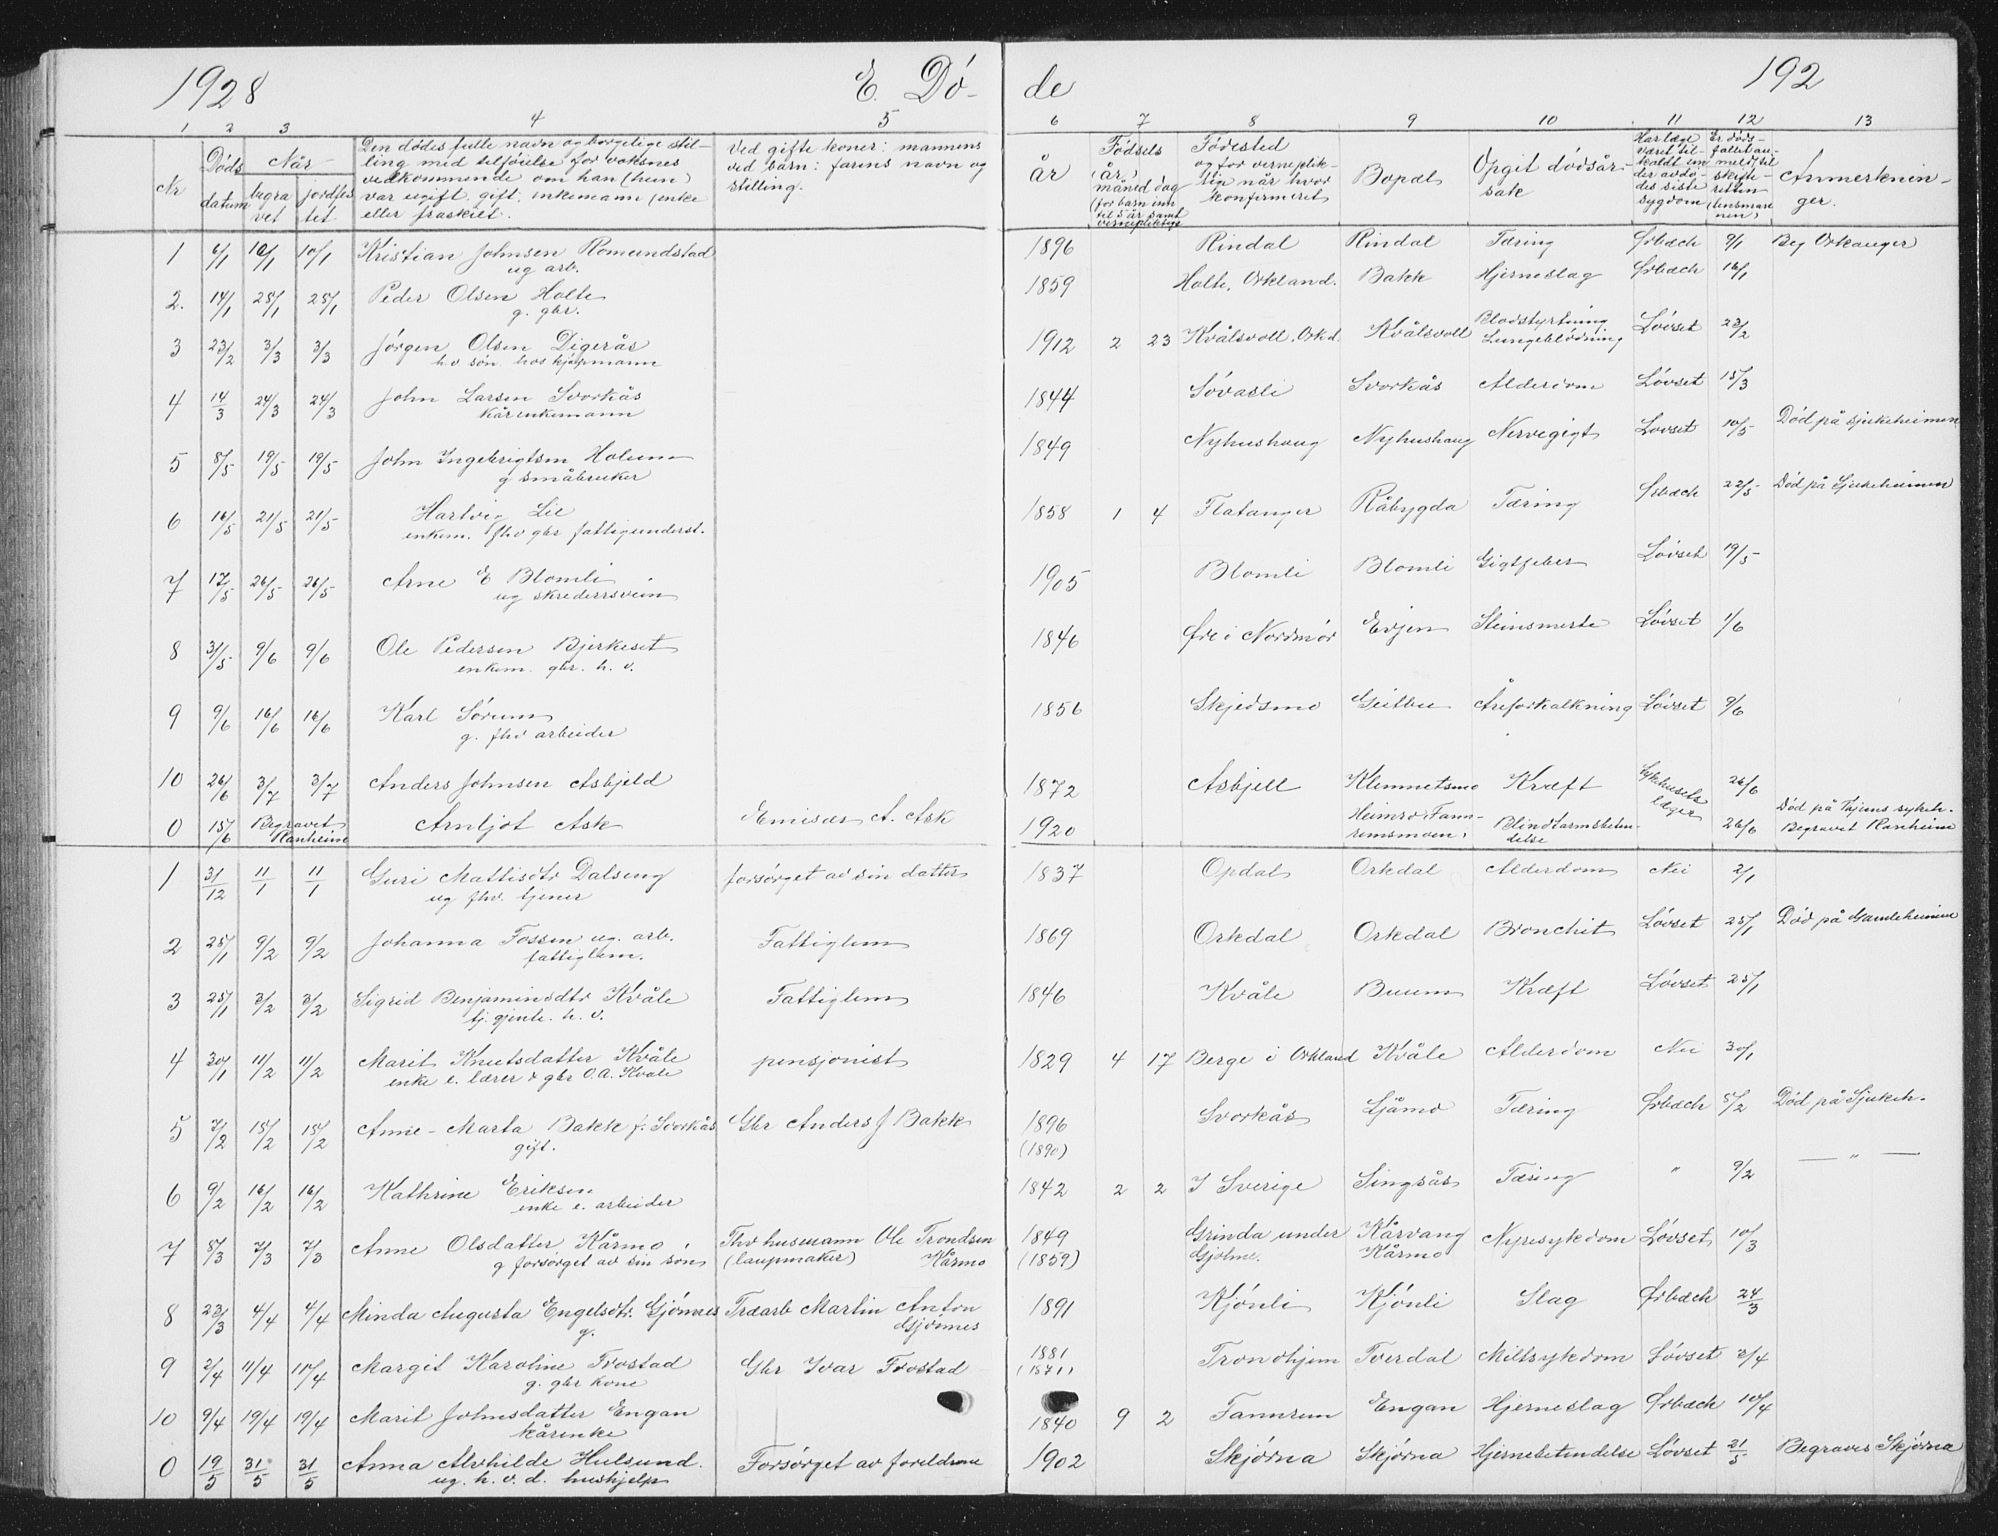 1928 E. Dö- de 192
1 2 3 4 5 6 7 8 9 10 11 12 13
Nr. Døds datum Når begravet jordfestet
Den dødes fulle navn og borgelige stil-
ling med tilføielse for voksnes
vedkommende om han (hun)
var ugift, gift, enkemann (enke
eller fraskilt.
Ved gifte koner: mannens
ved barn: farens navn og
stilling.
år
Fødsels (år) måned dag (for barn inn til 5 år samt vernepliktige
Fødested
og for verneplik-
tig når hvor
konfirmeret
Bopæl
Opgit dødsår-
sak
Har læge været til-
kaldt un
der avdø
des siste
sygdom
Er døds-
fallet an-
meldt til
skifte-
retten
(lensman-
nen)
Anmerknin-
ger.
1 6/1 10/1 10/1 Kristian Johnsen Romundstad 1896 Rindal Rindal Tæring Ørbæch 9/1 Beg Orkanger
ug arb.
2. 14/1 25/1 25/1 Peder Olsen Holte 1859 Holte, Orkland. Bakk Hjerneslag Ørbæch 16/1
g. gbr.
3 23/2 3/3 3/3 Jørgen Olsen Digerås 1912 2 23 Kvålsvoll, Orkd. Kvålsvoll Blodstyrtning Lungeblødning Løvset 23/2
hv søn hos kjøpmann
4 14/3 24/3 24/3 John Larsen Svorkås 1844 Søvasli Svorkås Alderdom Løvset 15/3
kårenkemann
5 8/5 19/5 19/5 John Ingebrigtsen Holum 1849 Nyhushaug Nyhushaug Nervegigt Løvset 10/5 Død på Sjukeheimen
g småbruker
6 16/5 21/5 21/5 Hartvig Lie 1858 1 4 Flatanger Råbygda Tæring Ørbæch 22/5 Død på Sjukeheimen
enkem. fhv gbr fattigunderst.
7 17/5 26/5 26/5 Arne E Blomli 1905 Blomli Blomli Gigtfeber Løvset 19/5
ug skreddersvein
8 31/5 9/6 9/6 Ole Pedersen Bjerkeset 1846 Øre i Nordmør Evjen Steinsmerte Løvset 1/6
enkem. gbr. h. v.
9 9/6 16/6 16/6 Karl Sørum 1856 Skjedsmo Geitbu Åreforkalkning Løvset 9/6
g. fhv arbeider
10 26/6 3/7 3/7 Anders Johnsen Asbjeld 1872 Asbjell Klemmetsmo Kræft Sykehusets læger 26/6
0 15/6 Begravet Ranheim Arnljot Ask Emisær A. Ask 1920 Heimro Fann-
remsmoen, Blindtarmsbeten-
delse 26/6 Død på Thjems sykeh.
Begravet Ranheim
1 31/12 11/1 11/1 Guri Mattisdtr Dalseng forsørget av sin datter 1837 Opdal Orkdal Alderdom Nei 2/1
ug fhv. tjener
2 25/1 9/2 9/2 Johanna Fossen ug. arb. Fattiglem 1869 Orkdal Orkdal Bronchit Løvset 25/1 Død på Gamleheimen
fattiglem.
3 25/1 3/2 3/2 Sigrid Benjaminsdtr Kvåle Fattiglem 1846 Kvåle Buum Kræft Løvset 25/1
tj. gjente. h. v.
4 30/1 11/2 11/2 Marit Knutsdatter Kvåle pensjonist 1829 4 17 Berge i Orkland Kvåle Alderdom Nei 30/1
enke e. lærer & gbr O.A. Kvåle
5 7/2 15/2 15/2 Anne-Marta Bakk f. Svorkås Gbr Anders J Bakk 1896 Svorkås Ljåmo Tæring Ørbæch 8/2 Død på Sjukeh.
gift. (1890)
6 9/2 16/2 16/2 Kathrine Eriksen 1842 2 2 I Sverige Singsås Tæring " 9/2 — " —
enke e. arbeider
7 5/3 7/3 7/3 Anne Olsdatter Kårmo, Fhv husmann Ole Trondsen 1849 Grinda under Kårvang Nyresykdom Løvset 10/3
g forsørget av sin søn (laupmaker) Kårmo (1859) Gjølme. Kårmo
8 23/3 4/4 4/4 Minda Augusta Engelsdtr. Gjønnes Træarb Martin Anton 1891 Kjønli Kjønli Slag Ørbæch 24/3
g. Gjønnes
9 2/4 11/4 11/4 Margit Karoline Frostad Gbr Ivar Frostad 1881 Trondhjem Tverdal Miltsykdom Løvset 3/4
g. gbr kone (1871)
10 9/4 19/4 19/4 Marit Johnsdatter Engan 1840 9 2 Fannrem Engan Hjerneslag Ørbæch 10/4
kårenke
0 19/5 31/5 31/5 Anna Alvhilde Hulsund. Forsørget av foreldrene 1902 Skjørna Skjørna Hjernebetendelse Løvset 21/5 Begraves Skjørna
ug. h. v. d. hushjelp